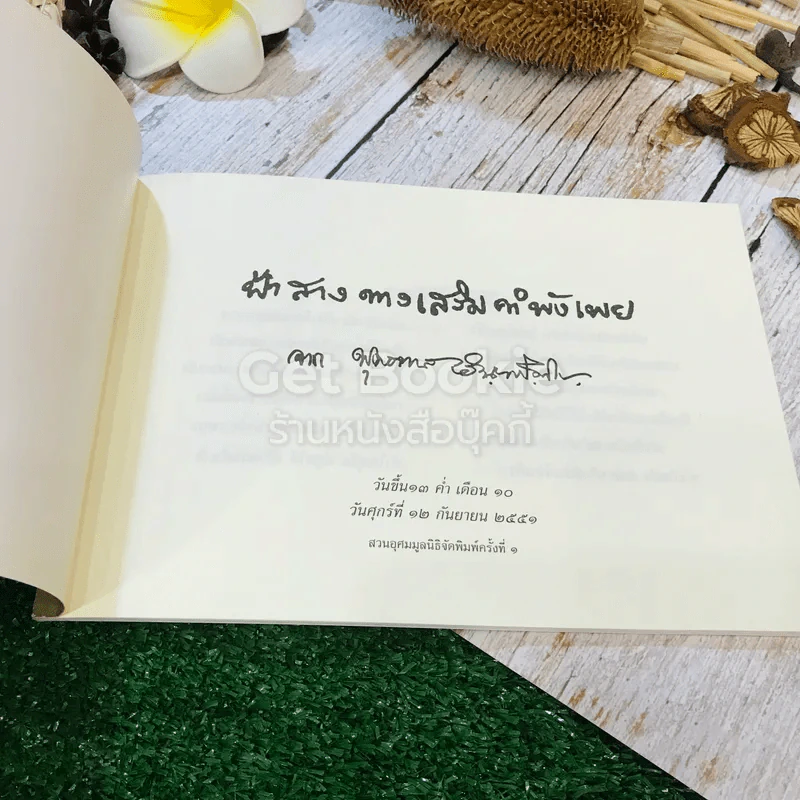 ฟ้าสาง ทางเสริม คำพังเพย
จาก พุทธทาส อินทปัญโญ
Get Bookie
ร้านหนังสือบุ๊คกี้
วันขึ้น๑๓ ค่ำ เดือน ๑๐
วันศุกร์ที่ ๑๒ กันยายน ๒๕๕๑
สวนอุศมมูลนิธิจัดพิมพ์ครั้งที่ ๑